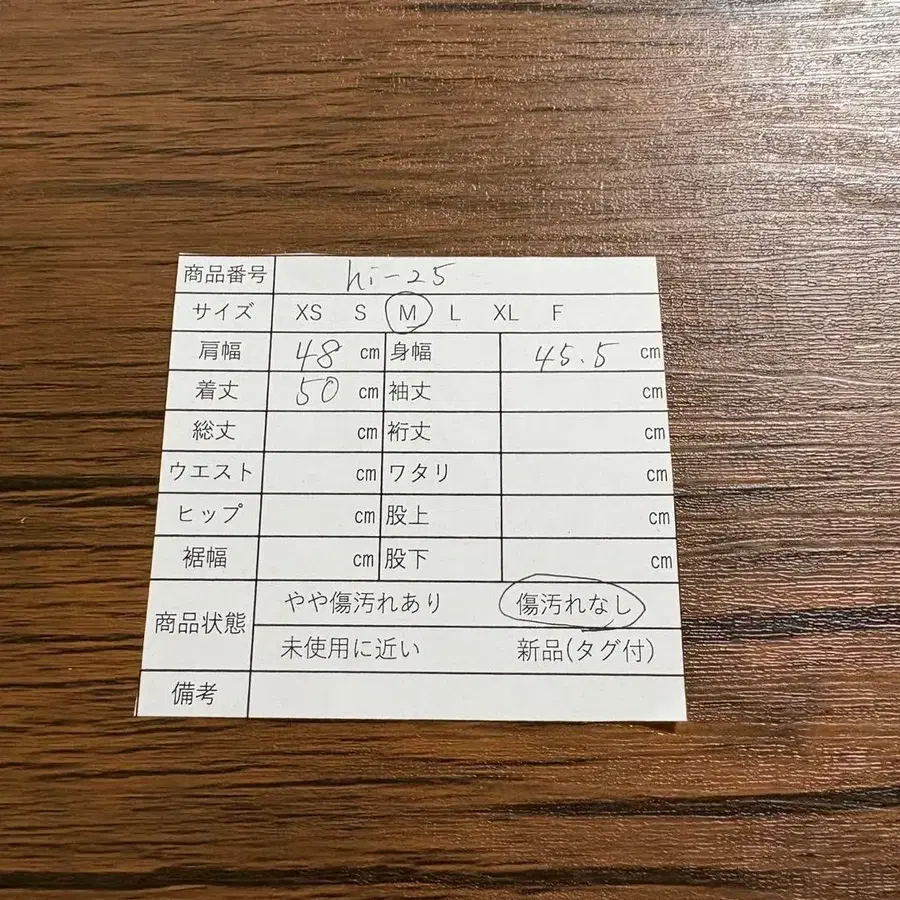 商品番号 hi-25
サイズ XS S M L XL F
肩幅 48 cm 身幅 45.5 cm
着丈 50 cm 袖丈 cm
総丈 cm 裄丈 cm
ウエスト cm ワタリ cm
ヒップ cm 股上 cm
裾幅 cm 股下 cm
商品状態 やや傷汚れあり 傷汚れなし
未使用に近い 新品(タグ付)
備考